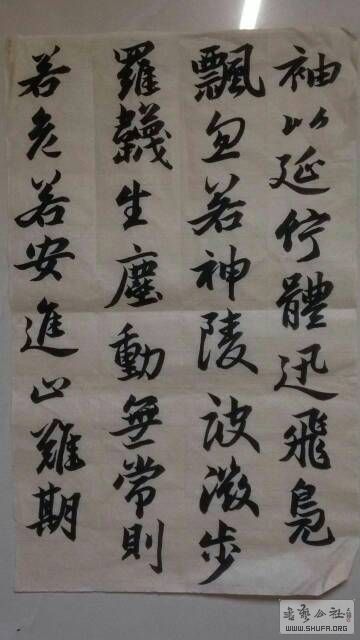 袖以延佇體迅飛鳧
飄忽若神陵波微步
羅韈生塵動無常則
若危若安進止難期
书艺公社
WWW.SHUFA.ORG